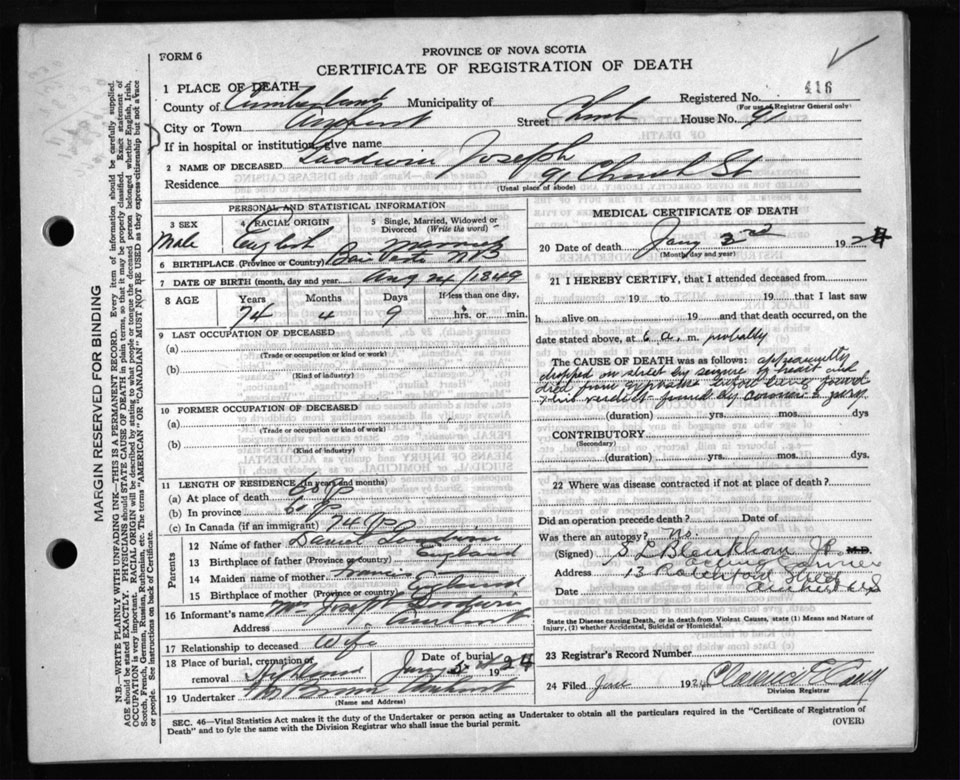 FORM 6
PROVINCE OF NOVA SCOTIA
CERTIFICATE OF REGISTRATION OF DEATH
416
1 PLACE OF DEATH
Registered No.
(For use of Registrar General only)
County of Cumberland Municipality of
City or Town Amherst Street Church House No. 91
If in hospital or institution, give name
2 NAME OF DECEASED Goodwin Joseph
Residence 91 Church St
(Usual place of abode)
PERSONAL AND STATISTICAL INFORMATION
3 SEX RACIAL ORIGIN 5 Single, Married, Widowed or Divorced (Write the word)
Male English Married
6 BIRTHPLACE (Province or Country) Baie Verte NB
7 DATE OF BIRTH (month, day and year) Aug 24/1849
8 AGE Years Months Days If less than one day,
74 4 9 hrs. or min.
9 LAST OCCUPATION OF DECEASED
(a)
(Trade or occupation or kind or work)
(b)
(Kind of industry)
10 FORMER OCCUPATION OF DECEASED
(a)
(Trade or occupation or kind of work)
(b)
(Kind of industry)
11 LENGTH OF RESIDENCE (In years and months)
(a) At place of death 60 yrs
(b) In province 60 yrs
(c) In Canada (if an immigrant) 74 yrs
Parents
12 Name of father Daniel Goodwin
13 Birthplace of father (Province or country) England
14 Maiden name of mother
15 Birthplace of mother (Province or country) England
16 Informant's name Mrs Joseph Goodwin
Address Amherst
17 Relationship to deceased Wife
18 Place of burial, cremation or removal Date of burial
Highland Jany 1924
19 Undertaker Amherst
(Name and Address)
MEDICAL CERTIFICATE OF DEATH
20 Date of death Jany 2nd 1924
(Month, day and year)
21 I HEREBY CERTIFY, that I attended deceased from
19 to 19 that I last saw
h alive on 19 and that death occurred, on
date stated above, at 6 a. m. probably
The CAUSE OF DEATH was as follows: apparently
dropped on street by seizure of heart and
died from before being found
verdict found by coroner's jury
(duration) yrs. mos. dys
CONTRIBUTORY
(Secondary)
(duration) yrs. mos. dys
22 Where was disease contracted if not at place of death?
Did an operation precede death? Date of
Was there an autopsy? No
(Signed) S L Blenkhorn JP M.D.
Acting Coroner
Address 13 Street
Date Amherst NS
State the Disease causing Death, or in death from Violent Causes, state (1) Means and Nature of
Injury, (2) whether Accidental, Suicidal or Homicidal.
23 Registrar's Record Number
24 Filed Jan 1924 Clarence
Division Registrar
SEC. 46—Vital Statistics Act makes it the duty of the Undertaker or person acting as Undertaker to obtain all the particulars required in the "Certificate of Registration of
Death" and to fyle the same with the Division Registrar who shall issue the burial permit.
(OVER)
MARGIN RESERVED FOR BINDING
N.B.—WRITE PLAINLY WITH UNFADING INK—THIS IS A PERMANENT RECORD. Every item of information should be carefully supplied.
AGE should be stated EXACTLY. PHYSICIANS should STATE CAUSE OF DEATH in plain terms, so that it may be properly classified. Exact statement of
OCCUPATION is very important. RACIAL ORIGIN will be described by stating to what people or tongue the deceased person belonged whether English, Irish,
Scotch, French, German, Russian, Ruthenian, etc. The terms "AMERICAN" OR "CANADIAN" MUST NOT BE USED as they express citizenship but not a race
or people. See instructions on back of Certificate.